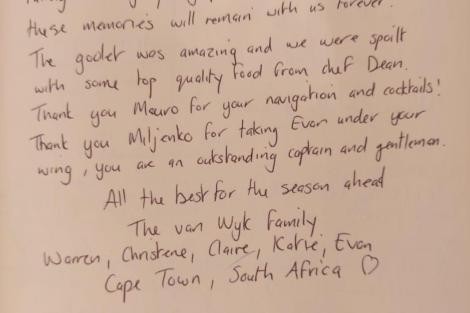 these memories will remain with us forever.
The goolet was amazing and we were spoilt
with some top quality food from chef Dean.
Thank you Mauro for your navigation and cocktails!
Thank you Miljenko for taking Evan under your
wing, you are an outstanding captain and gentleman.
All the best for the season ahead
The van Wyk Family
Warren, Christene, Claire, Katie, Evan
Cape Town, South Africa ♡